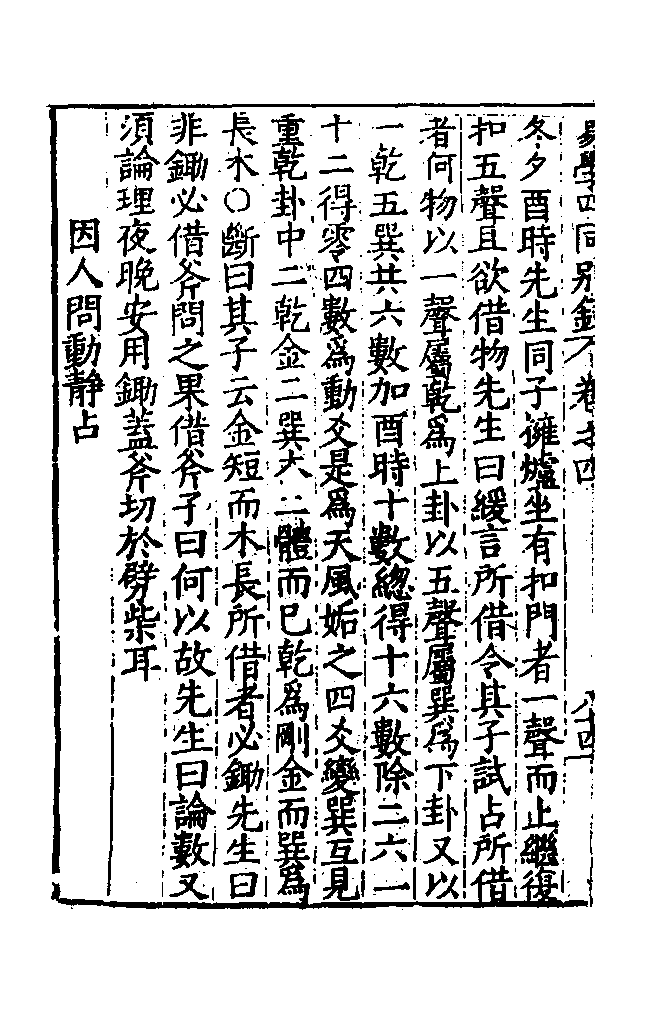 易學四同別錄 卷之四 八十四
冬夕酉時先生同子擁爐坐有扣門者一聲而止繼復
扣五聲且欲借物先生曰緩言所借令其子試占所借
者何物以一聲屬乾爲上卦以五聲屬巽爲下卦又以
一乾五巽共六數加酉時十數總得十六數除二六一
十二得零四數爲動爻是爲天風姤之四爻變巽互見
重乾卦中二乾金二巽木二體而已乾爲剛金而巽爲
長木○斷曰其子云金短而木長所借者必鋤先生曰
非鋤必借斧問之果借斧子曰何以故先生曰論數又
須論理夜晚安用鋤蓋斧切於劈柴耳
因人問動靜占